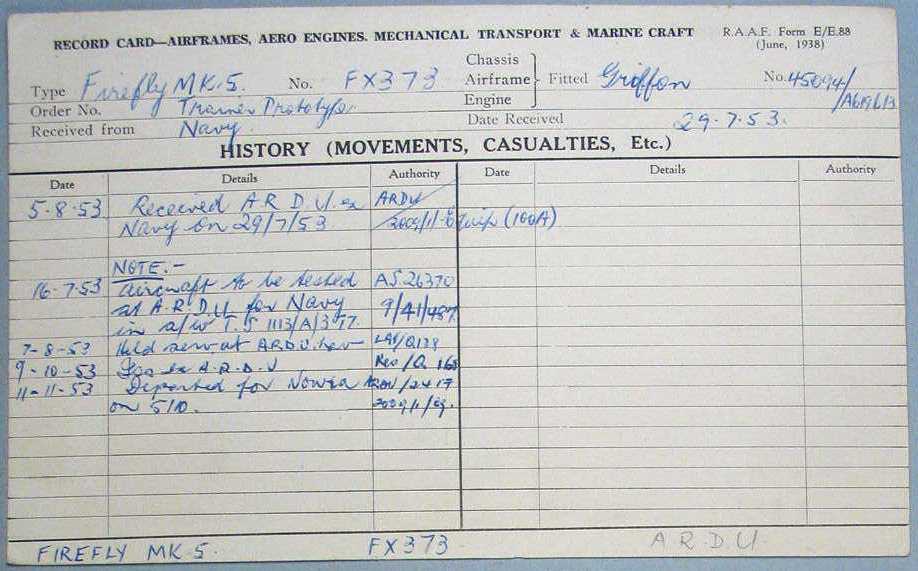 RECORD CARD—AIRFRAMES, AERO ENGINES. MECHANICAL TRANSPORT & MARINE CRAFT
R.A.A.F. Form E/E.88
(June, 1938)
Type Firefly MK.5. No. FX373
Chassis
Airframe
Engine
Fitted Griffon No. 45094/
Order No. Trainer Prototype
Received from Navy.
Date Received 29.7.53.
HISTORY (MOVEMENTS, CASUALTIES, Etc.)
Date Details Authority Date Details Authority
5-8-53 Received A R D U ex ARDU
Navy on 29/7/53 (100A)
NOTE.-
16-7-53 Aircraft to be tested AS 26370
at A.R.D.U. for Navy 9/41/487
in a/w T.S 1113/A/377.
7-8-53 Held serv. at A.R.D.U. Lav
9-10-53 ex A.R.D.U
11-11-53 Departed for Nowra
on 5/10.
FIREFLY MK 5. FX373 A.R.D.U.